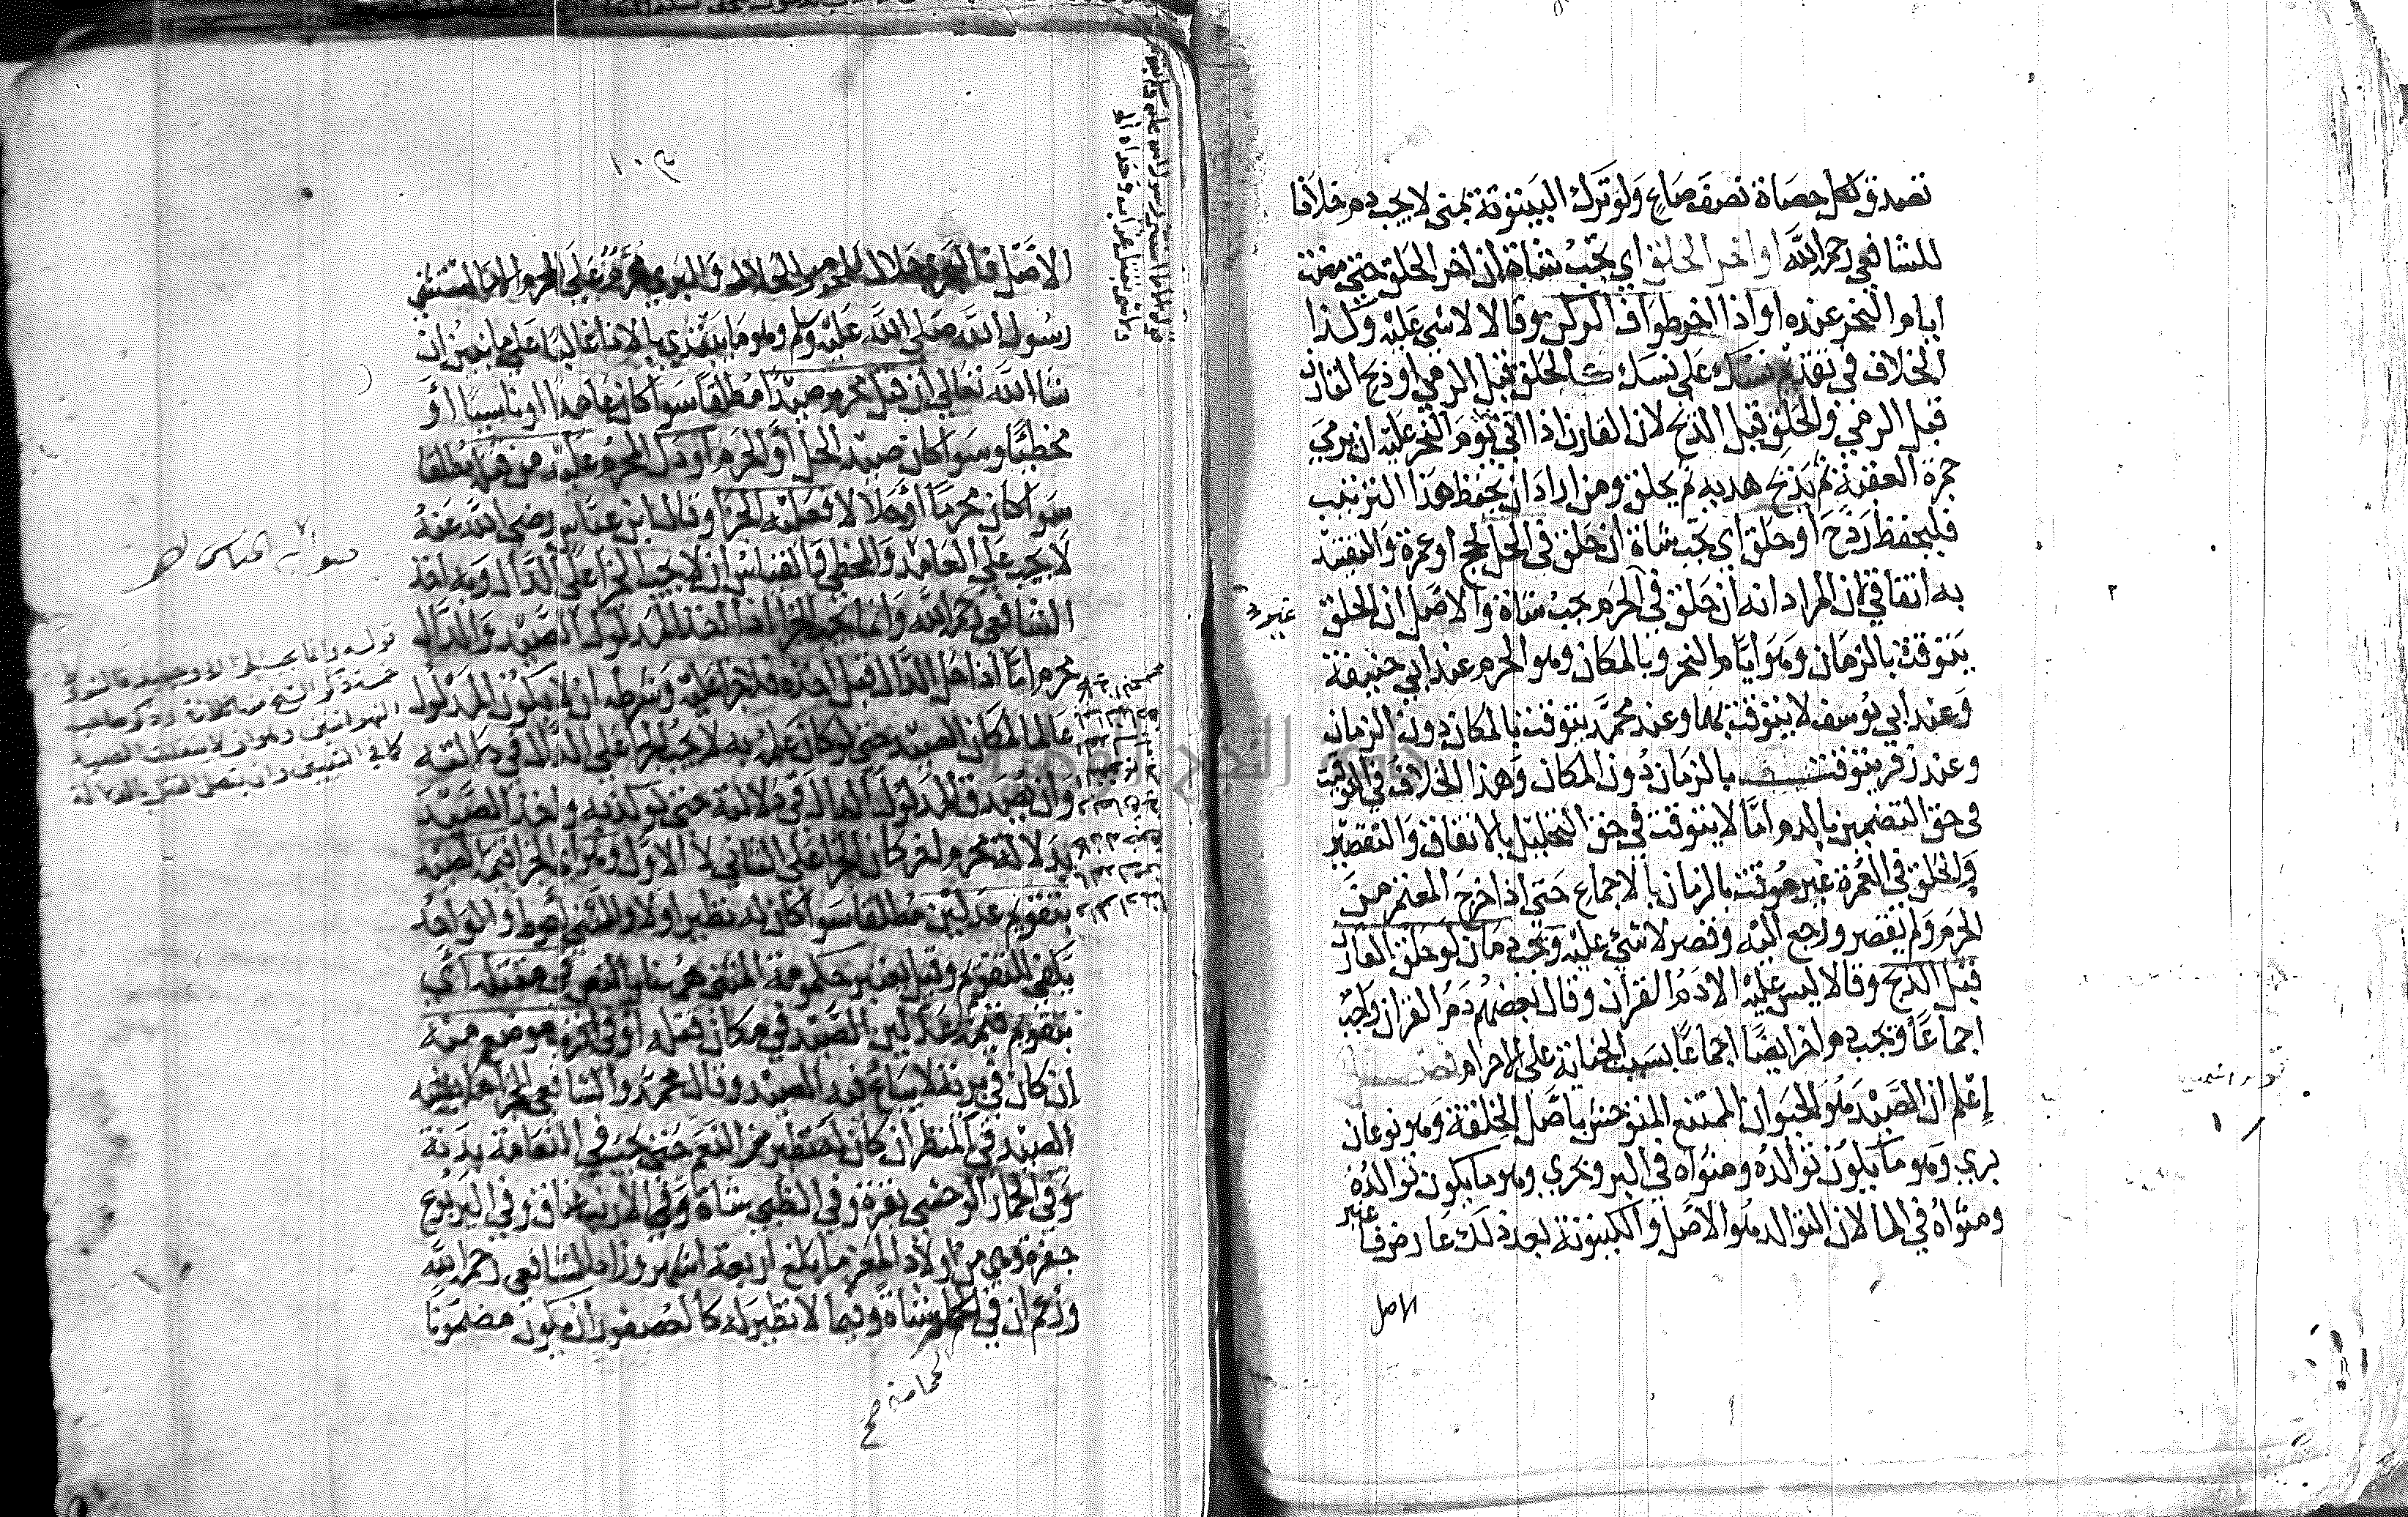 تصدق لكل حصاة نصف صاع ولو ترك البيتوتة بمنى لا يجب دم خلافا
للشافعي رحمه الله او اخر الحلق اي تجب شاة ان اخر الحلق حتى مضت
ايام النحر عنده او اذا اخر طواف الركن وقالا لا شي عليه وكذا
الخلاف في تقديم نسك على نسك كالحلق قبل الرمي او ذبح القارن
قبل الرمي والحلق قبل الذبح لان القارن اذا اتى يوم النحر عليه ان يرمي
جمرة العقبة ثم يذبح هديه ثم يحلق ومن اراد ان يحفظ هذا الترتيب
فليحفظ رذح او حلق اي تجب شاة ان حلق في الحل لحج او عمرة والتقييد
به اتفاقي لان المراد انه ان حلق في غير الحرم يجب شاة والاصل ان الحلق
يتوقت بالزمان وهو ايام النحر وبالمكان وهو الحرم عند ابي حنيفة
وعند ابي يوسف لا يتوقت بهما وعند محمد يتوقت بالمكان دون الزمان
وعند زفر يتوقت بالزمان دون المكان وهذا الخلاف في التوقيت
في حق التضمين بالدم اما لا يتوقت في حق التحليل بالاتفاق والتقصير
والحلق في العمرة غير موقت بالزمان بالاجماع حتى اذا خرج المعتمر من
الحرم ولم يقصر ورجع اليه وقصر لا شي عليه ويجب دمان لو حلق القارن
قبل الذبح وقالا ليس عليه الا دم القران وقال بعضهم دم القران واجب
اجماعا ويجب دم اخر ايضا اجماعا بسبب الجناية على الاحرام فصل
إعلم ان الصيد هو الحيوان الممتنع المتوحش باصل الخلقة وهو نوعان
بري وهو ما يكون توالده ومثواه في البر وبحري وهو ما يكون توالده
ومثواه في الما لان التوالد هو الاصل والكينونة بعد ذلك عارض فاعتبر
الاصل
١٠٣
الاصل فالبحري حلال للمحرم والحلال والبري محرم على المحرم الا ما استثنى
رسول الله صلى الله عليه وسلم وهو ما يبتدي بالاذا غالبا على ما نبين ان
شا الله تعالى ان قتل محرم صيدا مطلقا سوا كان عامدا او ناسيا او
مخطيا وسوا كان صيد الحل او الحرم او دل المحرم عليه من قتله مطلقا
سوا كان محرما او حلالا فعليه الجزا وقال ابن عباس رضي الله عنه
لا يجب على العامد والمخطي والقياس ان لا يجب الجزا على الدال وبه اخذ
الشافعي رحمه الله وانما يجب الجزا اذا اخذ المدلول الصيد والدال
محرم اما اذا حل الدال قبل اخذه فلا جزا عليه وشرطه ان لا يكون المدلول
عالما لمكان الصيد حتى لو كان علم به لا يجب الجزا على الدال في دلالته
وان يصدق المدلول الدال في دلالته حتى لو كذبه واخذ الصيد
بدلالة محرم اخر كان الجزا على الثاني لا الاول وهو اي الجزا قيمة الصيد
بتقويم عدلين مطلقا سوا كان له نظير او لا والمثنى احوط والواحد
يكفي للتقويم وقيل يعتبر حكومة المثنى هنا بالنص في مقتله اي
بتقويم قيمة عدلين الصيد في مكان قتله او في اقرب موضع منه
ان كان في برية لا يباع فيه الصيد وقال محمد والشافعي الجزا ما يشبه
الصيد في المنظر ان كان له نظير من النعم حتى يجب في النعامة بدنة
وفي الحمار الوحشي بقرة وفي الظبي شاة وفي الارنب عناق وفي اليربوع
جفرة وهي من اولاد المعز ما بلغ اربعة اشهر وزاد الشافعي رحمه الله
وزعم ان في الحمام شاة وفيما لا نظير له كالعصفور ان يكون مضمونا
كحمامة صح